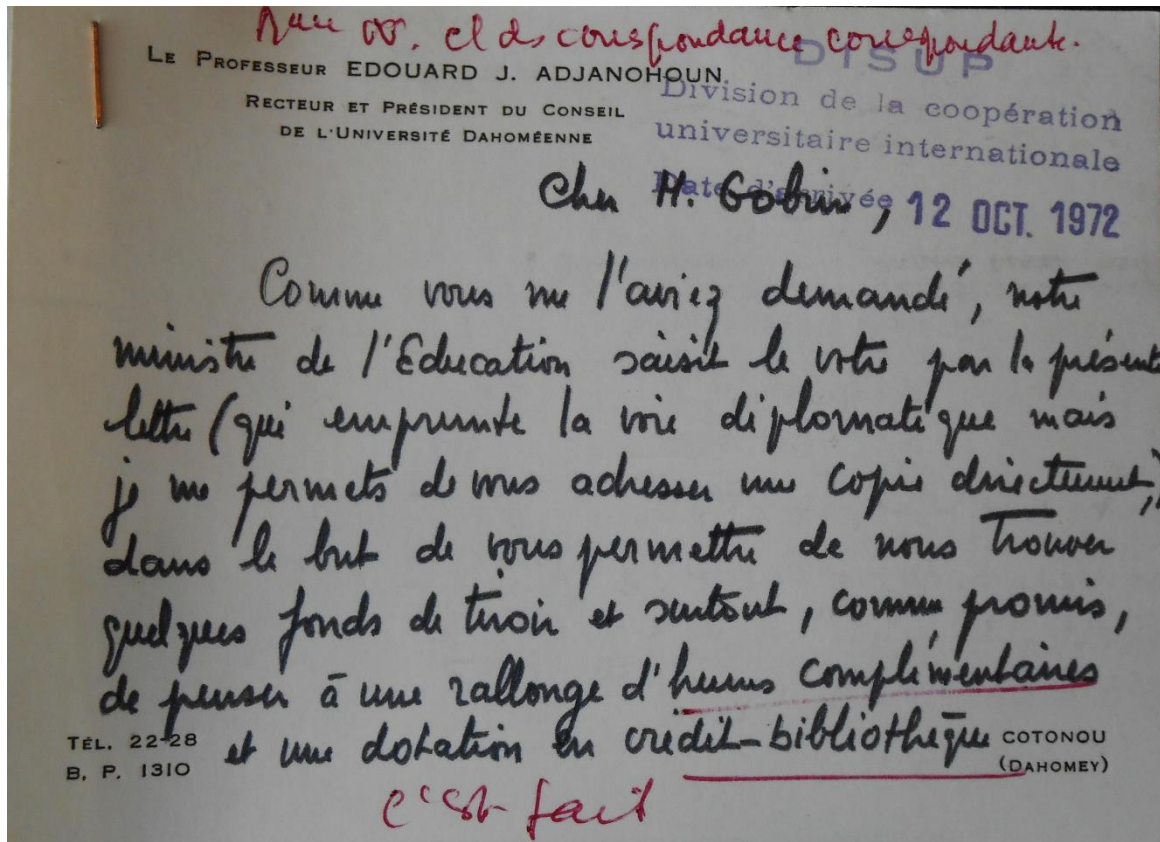 et des correspondance correspondante.
LE PROFESSEUR EDOUARD J. ADJANOHOUN
RECTEUR ET PRÉSIDENT DU CONSEIL
DE L'UNIVERSITÉ DAHOMÉENNE
DISUP
Division de la coopération
universitaire internationale
Date d'arrivée 12 OCT. 1972
Cher M. Gobin,
Comme vous me l'aviez demandé, notre
ministre de l'Education saisit le votre par la présente
lettre (qui emprunte la voie diplomatique mais
je me permets de vous adresser une copie directement,)
dans le but de vous permettre de nous trouver
quelques fonds de tiroir et surtout, comme promis,
de penser à une rallonge d'heures complémentaires
et une dotation en crédit-bibliothèque
TÉL. 22-28
B. P. 1310
COTONOU
(DAHOMEY)
c'est fait